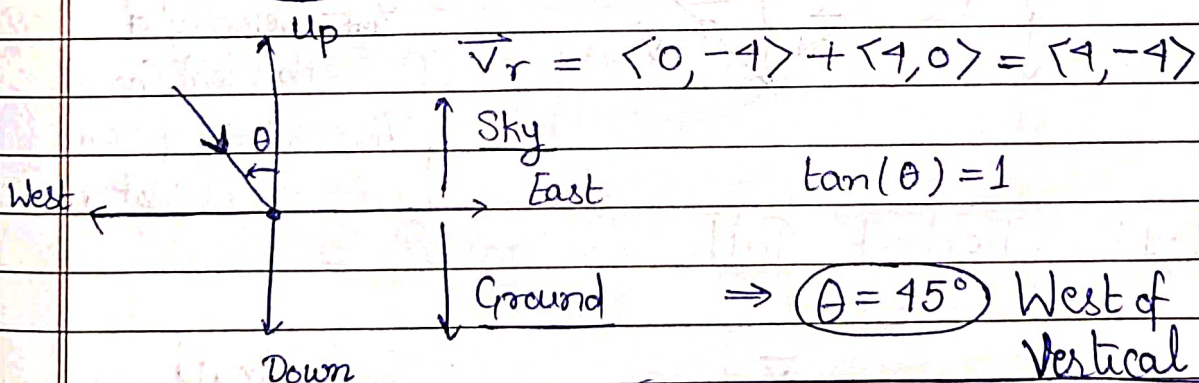 Up
V⃗r = <0,-4> + <4,0> = <4,-4>
Sky
θ
East
tan(θ) = 1
West
Ground
⇒ θ = 45° West of
Vertical
Down